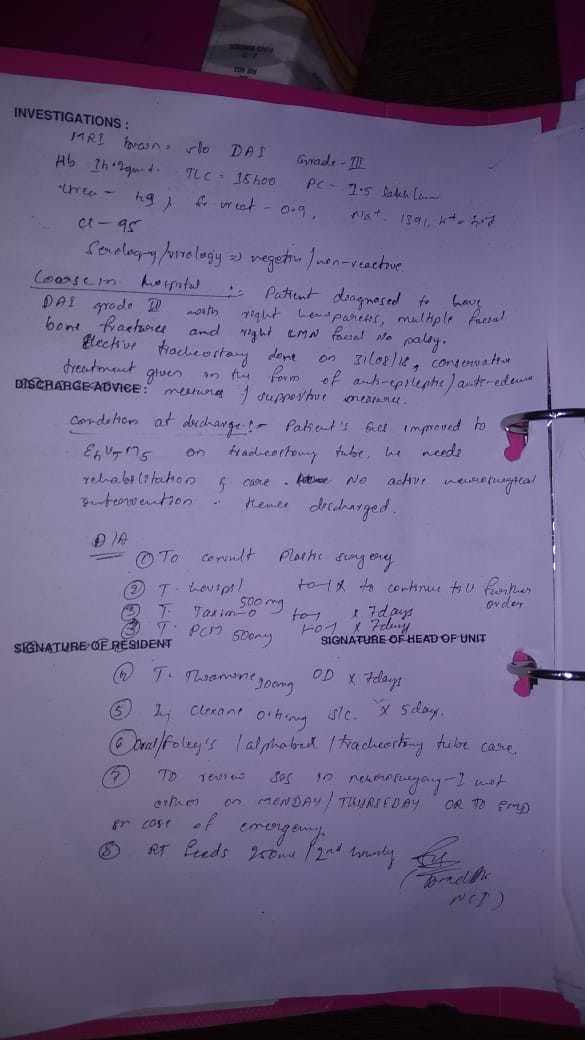 INVESTIGATIONS :
MRI brain = s/o DAI Grade - III
Hb 14.2gm%. TLC = 15400 PC - 1.5 lakh/cumm
Urea - 49, Sr creat - 0.9, Na+. 139,
Cl - 95
Serology/virology => negative/non-reactive.
Course in hospital := Patient diagnosed to have
DAI grade III with right hemiparesis, multiple facial
bone fractures and right LMN facial palsy.
Elective tracheostomy done on 31/08/18, conservative
treatment given in the form of anti-epileptic/anti-edema
DISCHARGE ADVICE : measures & supportive measures.
Condition at discharge:- Patient's GCS improved to
E4VTM5 on tracheostomy tube, he needs
rehabilitation & care. No active neurosurgical
intervention. Hence discharged.
D/A
① To consult Plastic surgery
② T. to continue till further
order
③ T. Taxim-O 500mg x 7days
③ T. PCM 500mg x 7days
SIGNATURE OF RESIDENT SIGNATURE OF HEAD OF UNIT
④ T. Thiamine 100mg OD x 7days
⑤ Inj Clexane 0.4mg s/c. x 5day.
⑥ Oral/Foley's /alphabed /tracheostomy tube care.
⑦ To review SOS in neurosurgery-I
either on MONDAY/THURSEDAY OR TO EMD
in case of emergency
⑧ RT feeds 250ml/2nd hourly